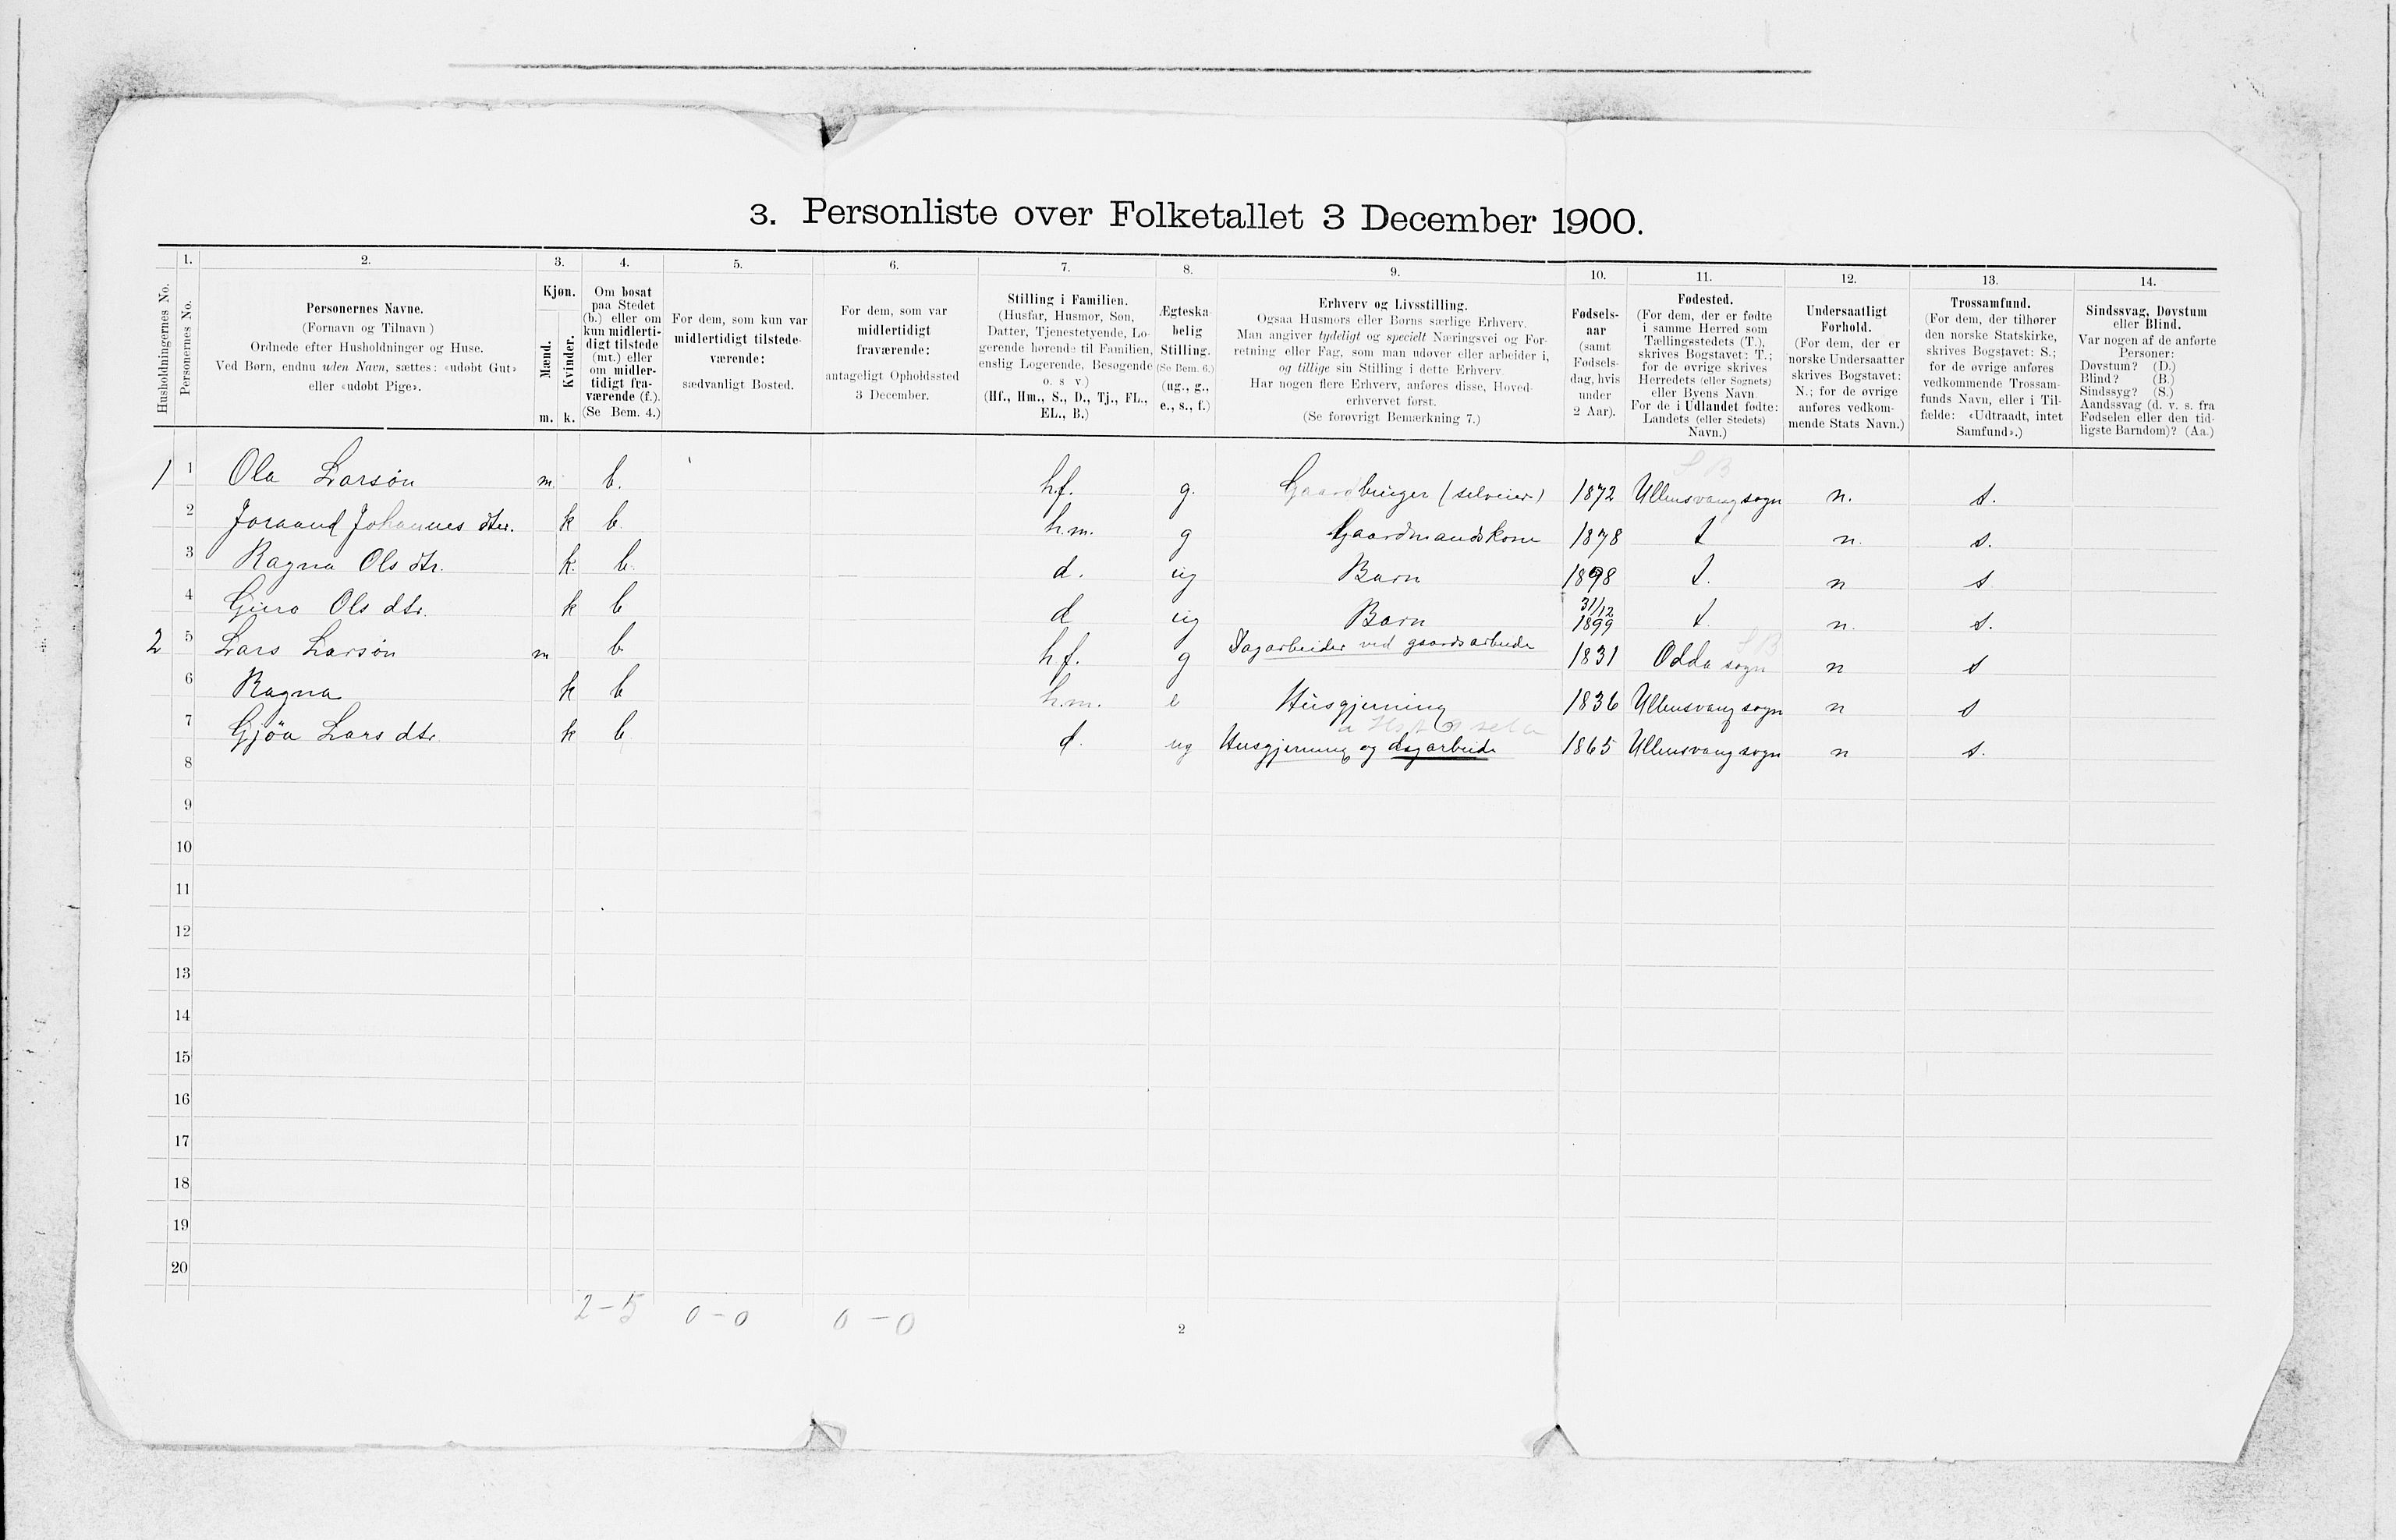 3. Personliste over Folketallet 3 December 1900.
Husholdningernes No.
1. Personernes No.
2. Personernes Navne.
(Fornavn og Tilnavn)
Ordnede efter Husholdninger og Huse.
Ved Børn, endnu uden Navn, sættes: «udøbt Gut»
eller «udøbt Pige».
3. Kjøn.
Mænd. m.
Kvinder. k.
4. Om bosat
paa Stedet
(b.) eller om
kun midlerti-
digt tilstede
(mt.) eller
om midler-
tidigt fra-
værende (f.).
(Se Bem. 4.)
5. For dem, som kun var
midlertidigt tilstede-
værende:
sædvanligt Bosted.
6. For dem, som var
midlertidigt
fraværende:
antageligt Opholdssted
3 December.
7. Stilling i Familien.
(Husfar, Husmor, Søn,
Datter, Tjenestetyende, Lo-
gerende hørende til Familien,
enslig Logerende, Besøgende
o. s v)
(Hf., Hm., S., D., Tj., FL.,
EL., B.)
8. Ægteska-
belig
Stilling.
(Se Bem. 6.)
(ug., g.,
e., s., f.)
9. Erhverv og Livsstilling.
Ogsaa Husmors eller Børns særlige Erhverv.
Man angiver tydeligt og specielt Næringsvei og For-
retning eller Fag, som man udøver eller arbeider i,
og tillige sin Stilling i dette Erhverv
Har nogen flere Erhverv, anføres disse, Hoved-
erhvervet først.
(Se forøvrigt Bemærkning 7.)
10. Fødsels-
aar
(samt
Fødsels-
dag, hvis
under
2 Aar).
11. Fødested.
(For dem, der er fødte
i samme Herred som
Tællingsstedets (T.),
skrives Bogstavet: T.;
for de øvrige skrives
Herredets (eller Sognets)
eller Byens Navn
For de i Udlandet fødte:
Landets (eller Stedets)
Navn.)
12. Undersaatligt
Forhold.
(For dem, der er
norske Undersaatter
skrives Bogstavet:
N.; for de øvrige
anføres vedkom-
mende Stats Navn.)
13. Trossamfund.
(For dem, der tilhører
den norske Statskirke,
skrives Bogstavet: S.;
for de øvrige anføres
vedkommende Trossam-
funds Navn, eller i Til-
fælde: «Udtraadt, intet
Samfund».)
14. Sindssvag, Døvstum
eller Blind.
Var nogen af de anførte
Personer:
Døvstum? (D.)
Blind? (B.)
Sindssyg? (S.)
Aandssvag (d. v. s. fra
Fødselen eller den tid-
ligste Barndom)? (Aa.)
1 1 Ola Larsøn m. b. hf. g. Gaardbruger (selveier) 1872 Ullensvang sogn n. s.
2 Joraand Johannes dter. k b. h.m. g Gaardmandskone 1878 t n. s.
3 Ragna Ols dtr. k. b. d. ug Barn 1898 t. n s
4 Ols dtr. k b d ug Barn 31/12 1899 t. n. s.
2 5 Lars Larsøn m b. hf. g Dagarbeider ved gaardsarbeide 1831 Odda sogn n s
6 Ragna k b h.m. e Husgjerning 1836 Ullensvang sogn n s
7 Gjöa Lars dtr k b d. ug Husgjerning og dagarbeide 1865 Ullensvang sogn n s.
8
9
10
11
12
13
14
15
16
17
18
19
20
2-5 0-0 0-0
2